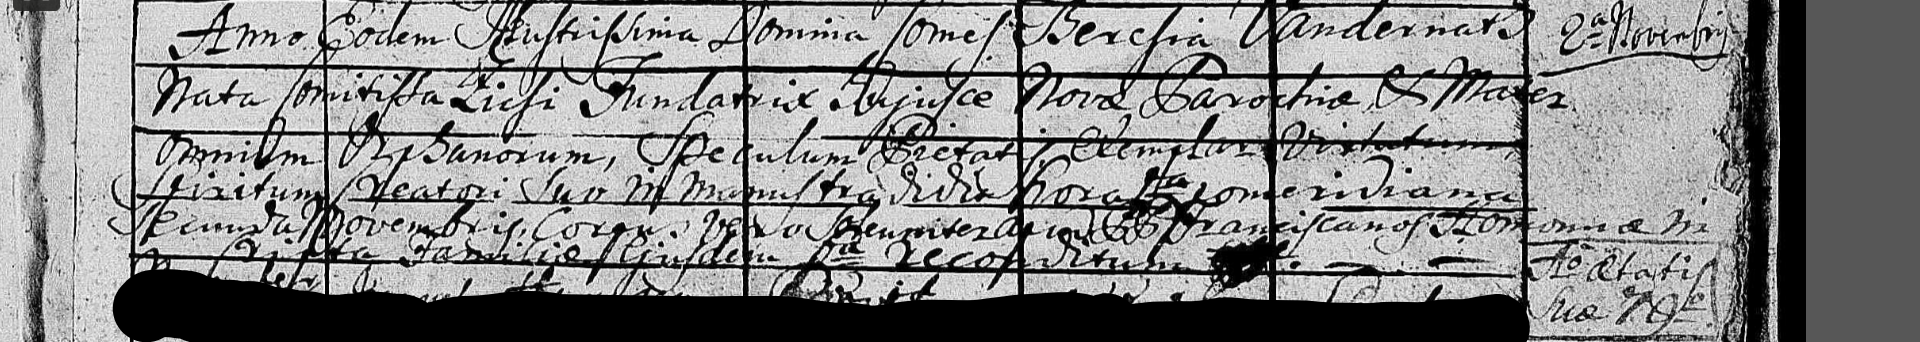 Anno Eodem Illustrissima Domina Comes Beresia Vandernats 2a Novembris
Nata Comitissa Zichi Fundatrix Hujusce Novæ Parochiæ & Mater
omnium Orphanorum, Speculum Pietatis, Exemplar virtutum,
Spiritum Creatori Suo in manus tradidit hora pomeridiana
Secunda Novembris, Corpu. vero Solenniter apud Franciscanos Homonnæ in
Cripta Familiæ Ejusdem reconditum
Ao Ætatis
Suæ